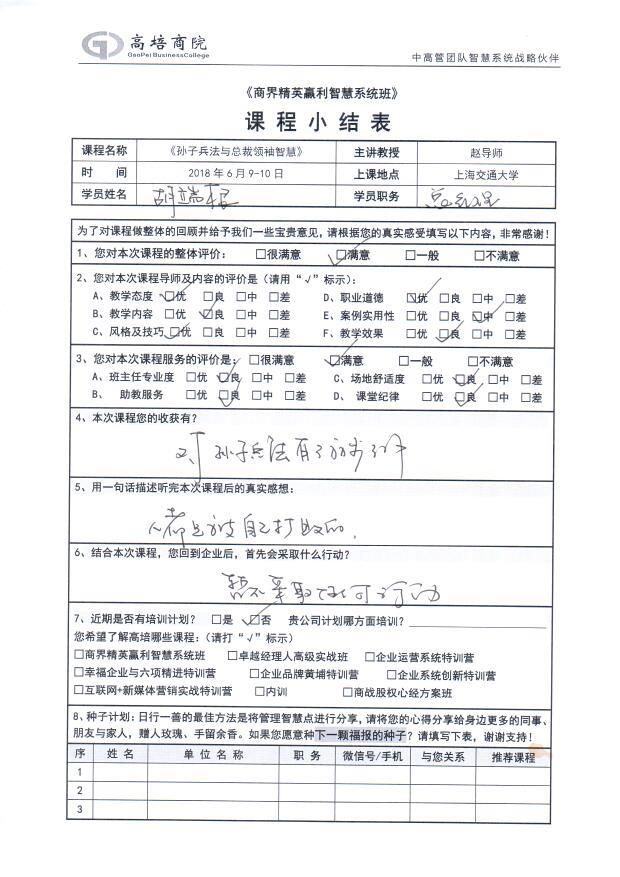 高培商院
GaoPei BusinessCollege
中高管团队智慧系统战略伙伴
《商界精英赢利智慧系统班》
课程小结表
课程名称 《孙子兵法与总裁领袖智慧》 主讲教授 赵导师
时 间 2018年6月9-10日 上课地点 上海交通大学
学员姓名 胡端根 学员职务 总经理
为了对课程做整体的回顾并给予我们一些宝贵意见,请根据您的真实感受填写以下内容,非常感谢!
1、您对本次课程的整体评价: □很满意 ☑满意 □一般 □不满意
2、您对本次课程导师及内容的评价是(请用“√”标示):
A、教学态度 ☑优 □良 □中 □差 D、职业道德 ☑优 □良 □中 □差
B、教学内容 □优 ☑良 □中 □差 E、案例实用性 □优 □良 ☑中 □差
C、风格及技巧 ☑优 □良 □中 □差 F、教学效果 □优 ☑良 □中 □差
3、您对本次课程服务的评价是: □很满意 ☑满意 □一般 □不满意
A、班主任专业度 □优 ☑良 □中 □差 C、场地舒适度 □优 ☑良 □中 □差
B、 助教服务 □优 ☑良 □中 □差 D、 课堂纪律 □优 ☑良 □中 □差
4、本次课程您的收获有?
对孙子兵法有了初步了解
5、用一句话描述听完本次课程后的真实感想:
人都是被自己打败的.
6、结合本次课程,您回到企业后,首先会采取什么行动?
暂不采取任何行动
7、近期是否有培训计划? □是 ☑否 贵公司计划哪方面培训?
您希望了解高培哪些课程:(请打“√”标示)
□商界精英赢利智慧系统班 □卓越经理人高级实战班 □企业运营系统特训营
□幸福企业与六项精进特训营 □企业品牌黄埔特训营 □企业系统创新特训营
□互联网+新媒体营销实战特训营 □内训 □商战股权心经方案班
8、种子计划:日行一善的最佳方法是将管理智慧点进行分享,请将您的心得分享给身边更多的同事、
朋友与家人,赠人玫瑰、手留余香。如果您愿意种下一颗福报的种子?请填写下表,谢谢支持!
序 姓 名 单 位 名 称 职 务 微信号/手机 与您关系 推荐课程
1
2
3